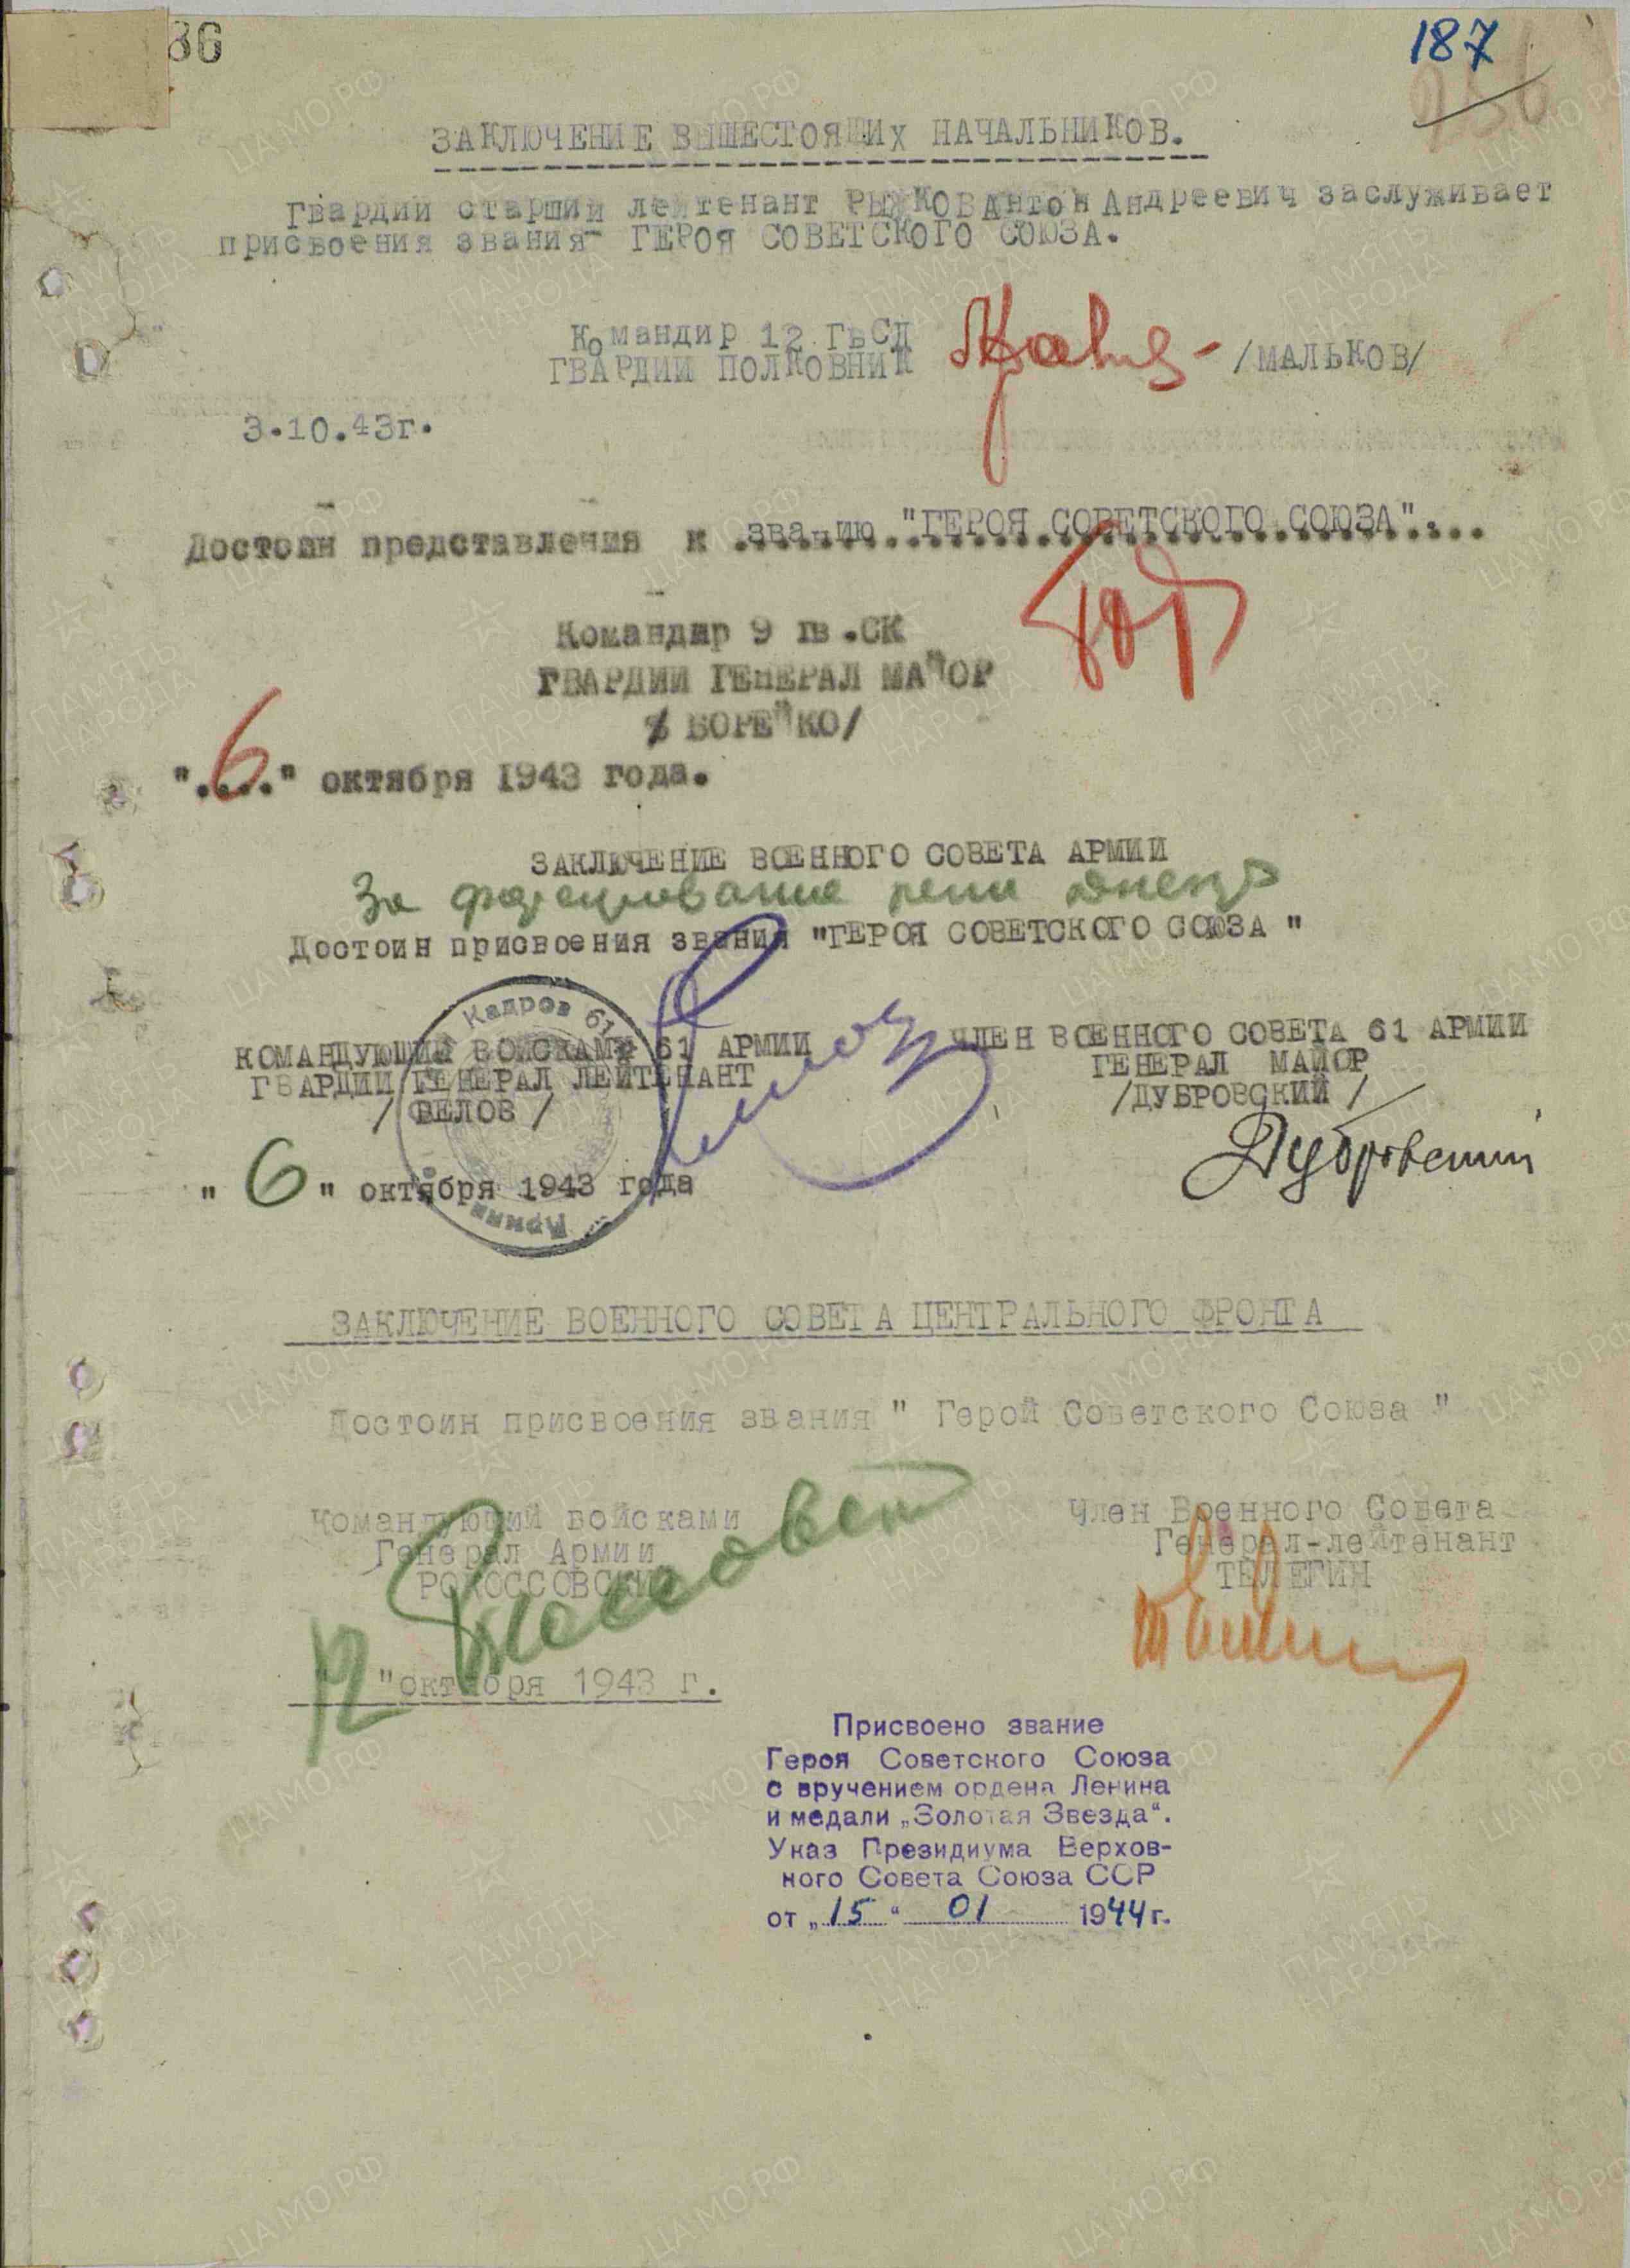 36
187
ЗАКЛЮЧЕНИЕ ВЫШЕСТОЯЩИХ НАЧАЛЬНИКОВ.
Гвардии старший лейтенант РЫЖКОВ Антон Андреевич заслуживает
присвоения звания- ГЕРОЯ СОВЕТСКОГО СОЮЗА.
Командир 12 ГвСД
ГВАРДИИ ПОЛКОВНИК /МАЛЬКОВ/
3.10.43г.
Достоин представления к званию "ГЕРОЯ СОВЕТСКОГО СОЮЗА"...
Командир 9 гв.СК
ГВАРДИИ ГЕНЕРАЛ МАЙОР
/ БОРЕЙКО/
"6" октября 1943 года.
ЗАКЛЮЧЕНИЕ ВОЕННОГО СОВЕТА АРМИИ
За форсирование реки Днепр
Достоин присвоения звания "ГЕРОЯ СОВЕТСКОГО СОЮЗА"
Кадров 61
Армии
КОМАНДУЮЩИЙ ВОЙСКАМИ 61 АРМИИ
ГВАРДИИ ГЕНЕРАЛ ЛЕЙТЕНАНТ
/ БЕЛОВ /
ЧЛЕН ВОЕННОГО СОВЕТА 61 АРМИИ
ГЕНЕРАЛ МАЙОР
/ДУБРОВСКИЙ /
Дубровский
" 6 " октября 1943 года
ЗАКЛЮЧЕНИЕ ВОЕННОГО СОВЕТА ЦЕНТРАЛЬНОГО ФРОНТА
Достоин присвоения звания " Герой Советского Союза "
Командующий войсками
Генерал Армии
РОКОССОВСКИЙ
Член Военного Совета
Генерал-лейтенант
ТЕЛЕГИН
12 "октября 1943 г.
Присвоено звание
Героя Советского Союза
с вручением ордена Ленина
и медали „Золотая Звезда“.
Указ Президиума Верхов-
ного Совета Союза ССР
от „15“ 01 1944 г.
ПАМЯТЬ НАРОДА
ЦАМО.РФ